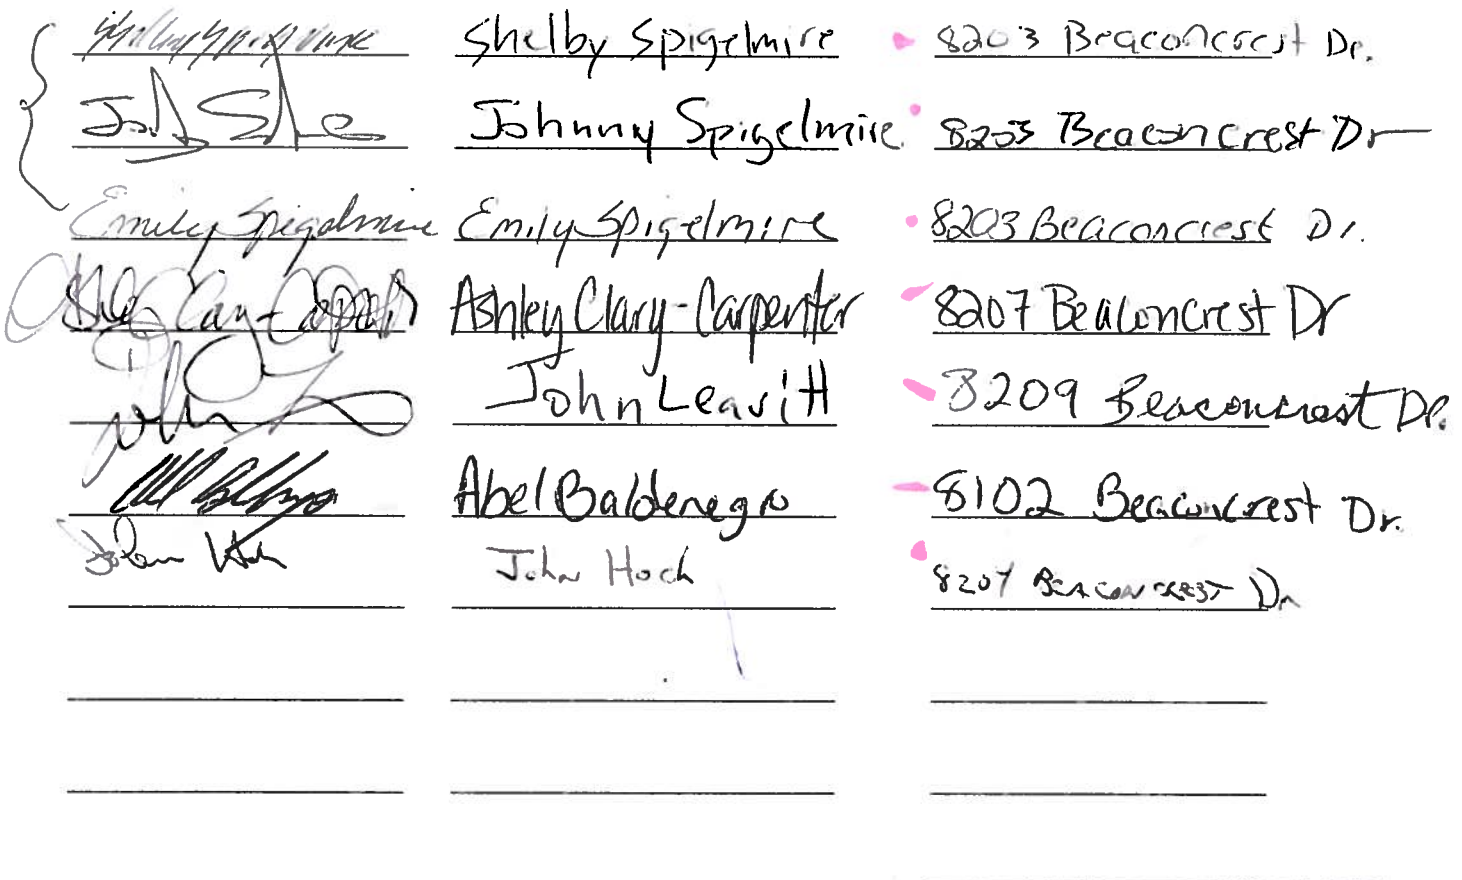 Shelby Spigelmire Shelby Spigelmire 8203 Beaconcrest Dr.
Johnny Spigelmire 8203 Beaconcrest Dr
Emily Spigelmire Emily Spigelmire 8203 Beaconcrest Dr.
Ashley Clary-Carpenter Ashley Clary-Carpenter 8207 Beaconcrest Dr
John Leavitt 8209 Beaconcrest Dr.
Abel Baldenegro 8102 Beaconcrest Dr.
John Hoch Beaconcrest Dr